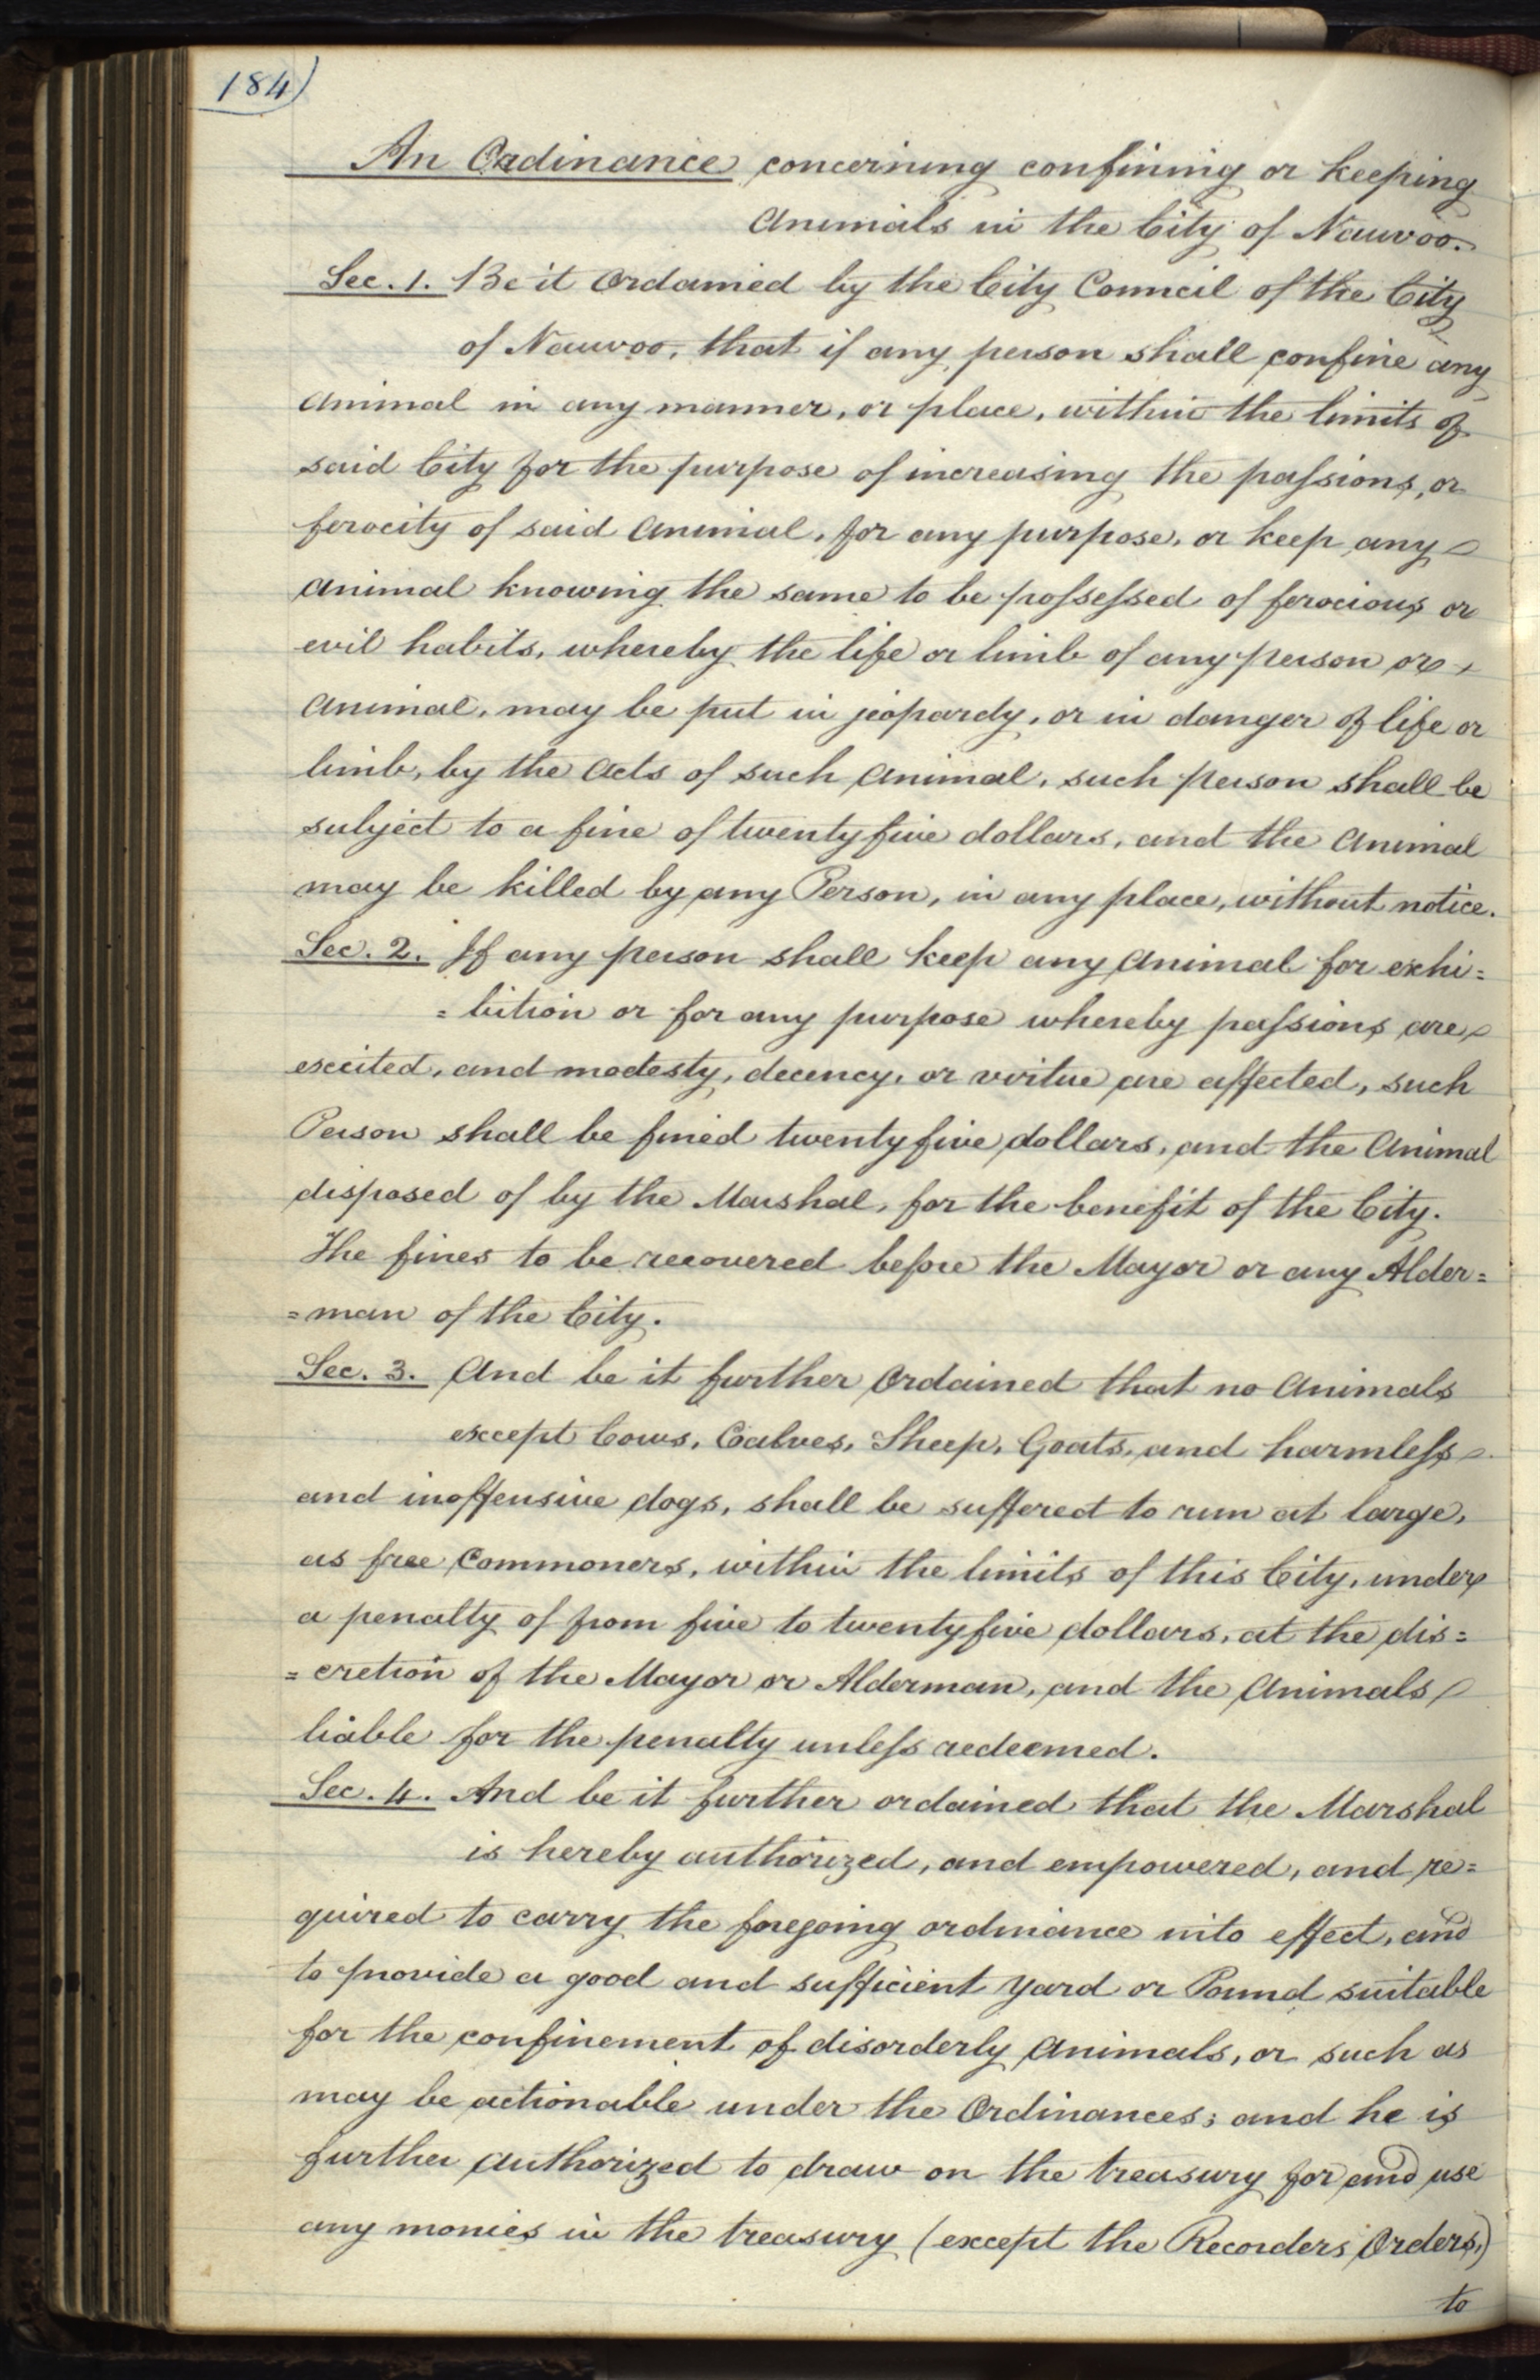 184)
An Ordinance concerning confining or keeping
Animals in the City of Nauvoo.
Sec. 1. Be it Ordained by the City Council of the City
of Nauvoo, that if any person shall confine any
Animal in any manner, or place, within the limits of
said City for the purpose of increasing the passions, or
ferocity of said Animal, for any purpose, or keep any
Animal knowing the same to be possessed of ferocious or
evil habits, whereby the life or limb of any person or
Animal, may be put in jeopardy, or in danger of life or
limb, by the Acts of such Animal, such person shall be
subject to a fine of twenty five dollars, and the Animal
may be killed by any Person, in any place, without notice.
Sec. 2. If any person shall keep any Animal for exhi=
=bition or for any purpose whereby passions are
excited, and modesty, decency, or virtue are affected, such
Person shall be fined twenty five dollars, and the Animal
disposed of by the Marshal, for the benefit of the City.
The fines to be recovered before the Mayor or any Alder=
=man of the City.
Sec. 3. And be it further Ordained that no Animals
except Cows, Calves, Sheep, Goats, and harmless
and inoffensive dogs, shall be suffered to run at large,
as free Commoners, within the limits of this City, under
a penalty of from five to twenty five dollars, at the dis=
=cretion of the Mayor or Alderman, and the Animals
liable for the penalty unless redeemed.
Sec. 4. And be it further ordained that the Marshal
is hereby authorized, and empowered, and re=
quired to carry the foregoing ordinance into effect, and
to provide a good and sufficient Yard or Pound suitable
for the confinement of disorderly Animals, or such as
may be actionable under the Ordinances; and he is
further Authorized to draw on the treasury for and use
any monies in the treasury (except the Recorders Orders,)
to